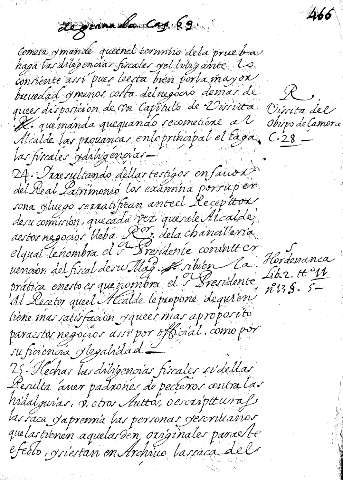 de granada Cap. 69
466
Cometa y mande que en el termino de la prueba
haga las diligencias fiscales y el lo haga ante lo
consiente assi pues le esta bien por la mayor
brevedad y menos costa del negocio demas de
que es disposicion de un Capitulo de Vissita
R. que manda que quando se cometiere al
Alcalde las provanças en lo principal el haga
las fiscales y diligencias
R
Vissita del
Obispo de Camora
C. 28
24. I resultando dellas testigos en favor
del Real Patrimonio los examina por su per
sona y luego se ratifican ante el Receptor
de su comission, que cada vez que sale Alcalde
a estos negocios lleba R.or de la chancilleria
el qual le nombra el S. Presidente con inter
vencion del fiscal de su Mag. si bien la
prática en esto es que nombra el S. Presidente
Al Recetor que el Alcalde le propone de quien
tiene mas satisfacion y que es mas aproposito
para estos negocios assi por official, como por
su ficiencia y legalidad
Hordenanca
Lib 2. tt.o 11
n.o 13, 8. 5
25. Hechas las diligencias fiscales si dellas
Resulta aver padrones de pecheros contra las
hidalguias, u otros Auttos, o escripturas
las saca y apremia las personas y escrivanos
que las tienen a que las den, originales para este
efecto, y si estan en Archivo, las saca del